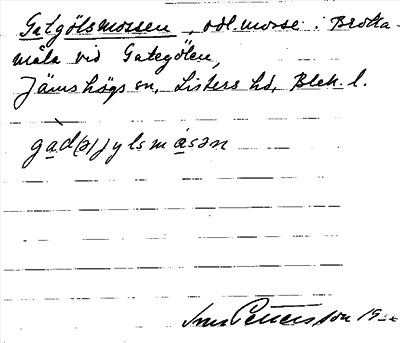 Gatgölsmossen, odl. mosse. Brokamåla vid Gategölen,
Jämshögs sn, Listers hd, Blek. l.
gad(ə)jylsmåsən
Pettersson 19